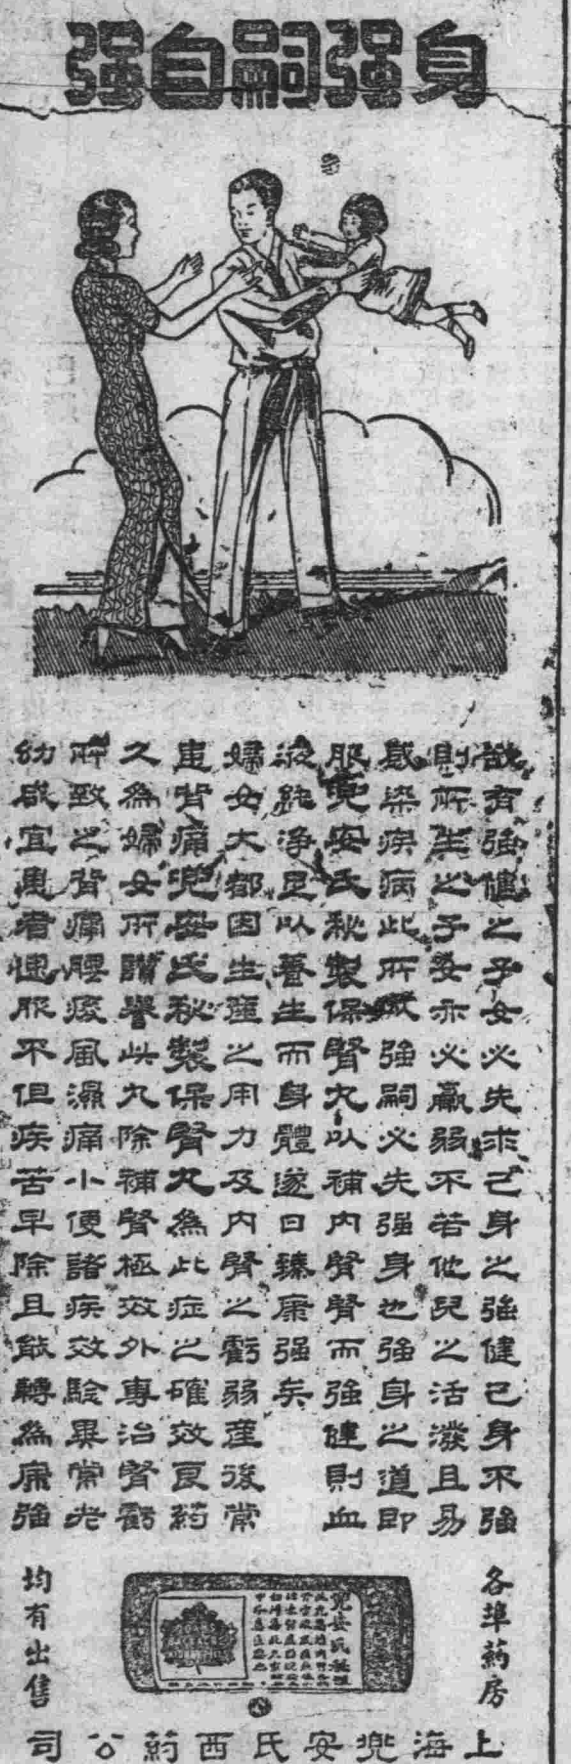 身强嗣自强
欲有強健之子女必先求己身之強健己身不強
則所生之子女亦必羸弱不若他兒之活潑且易
感染疾病此所強嗣必先强身也強身之道即
服兜安氏秘製保腎丸以補內腎腎而強健則血
液純淨足以養生而身體遂日臻康强矣
婦女大都因生產之用力及內腎之虧弱產後常
患背痛兜安氏秘製保腎丸為此症之確效良葯
久為婦女所讚譽此丸除補腎極效外專治腎虧
所致之背痛腰痠風濕痛小便諸疾效騐異常老
幼咸宜患者速服不但疾苦早除且能轉為康強
各埠葯房
均有出售
兜安氏秘
上海兜安氏西葯公司